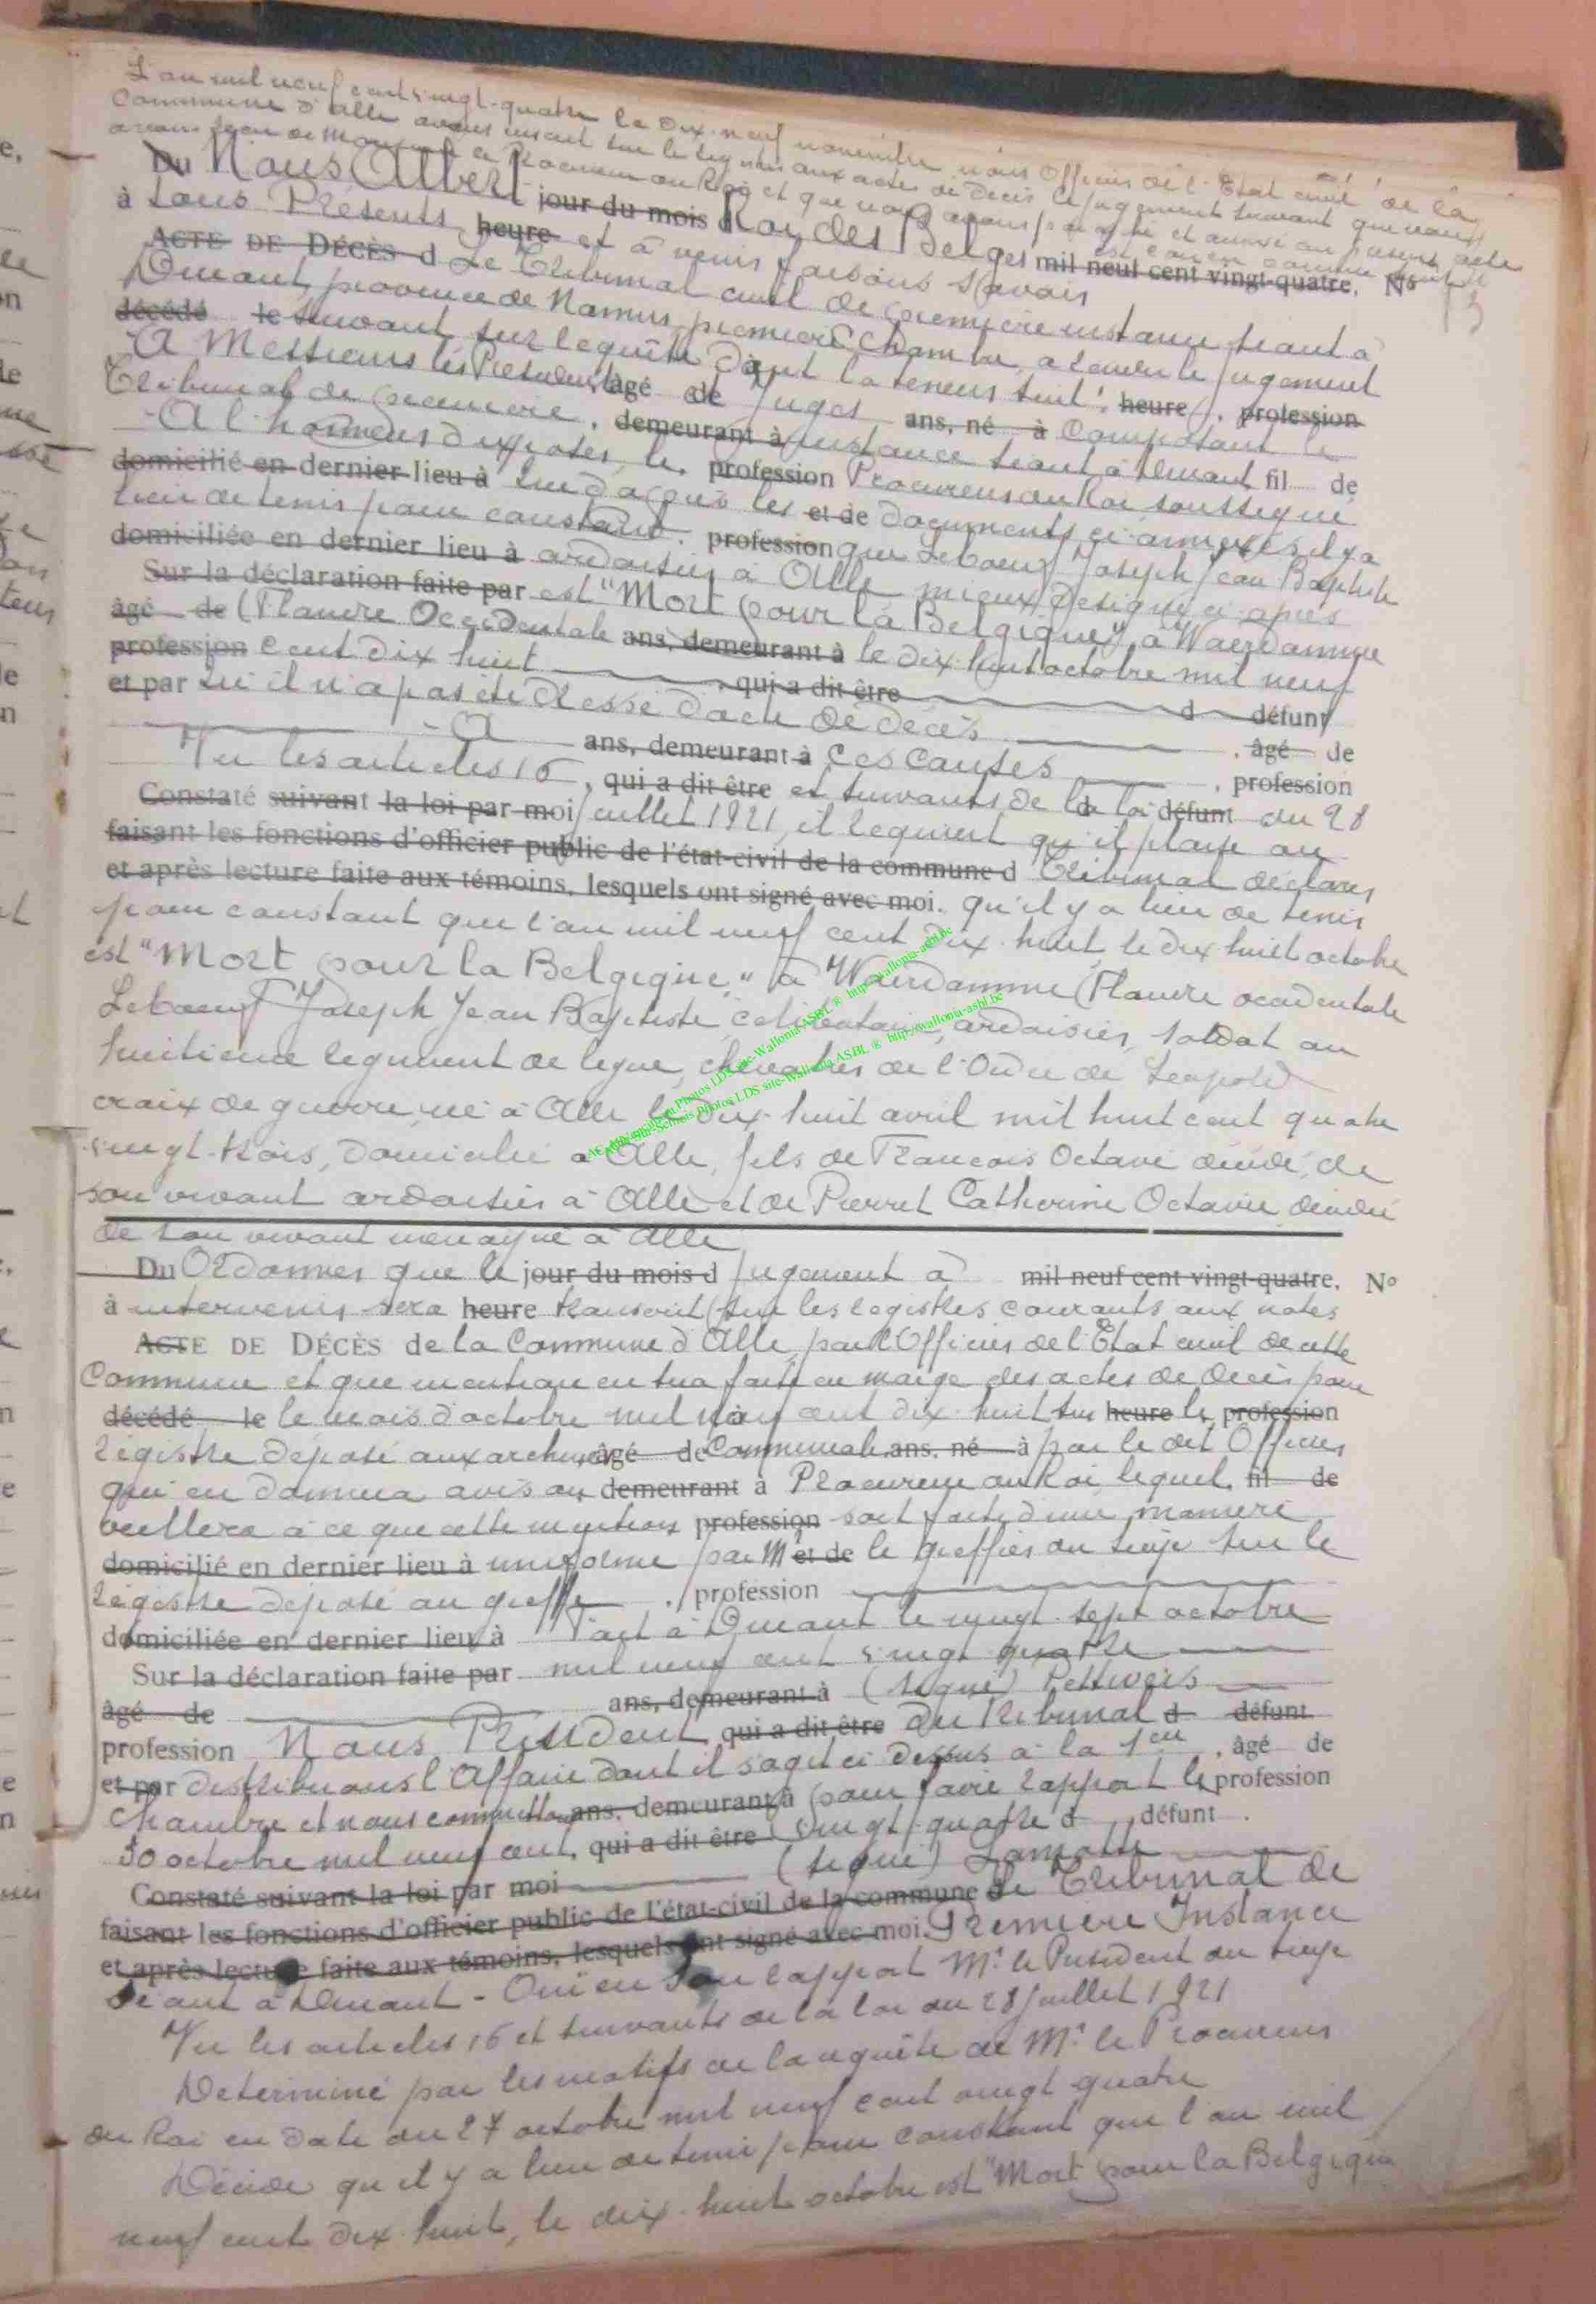 L'an mil neuf cent vingt-quatre le dix-neuf novembre nous Officier de l'Etat civil de la
Commune d'Alle avons inscrit sur le registre aux actes de décès le jugement suivant que nous
avons reçu de Monsieur le Procureur du Roi et que nous avons paraphé et annexé au présent acte
est conçu comme suit
Du Nous Albert jour du mois Roi des Belges mil neuf cent vingt-quatre. No
13
à tous Présents heure et à venir faisons savoir
ACTE DE DÉCÈS d Le Tribunal civil de première instance séant à
Dinant, province de Namur, première Chambre, a rendu le jugement
décédé le suivant sur requête dont la teneur suit: heure, profession
A Messieurs les Président, âgé de Juges ans, né à Composant le
Tribunal de première, demeurant à instance séant à Dinant fil de
A l'honneur d'exposer, le, profession Procureur du Roi soussigné
domicilié en dernier lieu à que d'après les et de documents ci-annexés il y a
lieu de tenir pour constant, profession que Leboeuf Joseph Jean Baptiste
domiciliée en dernier lieu à ardoisier à Alle mieux désigné ci-après
Sur la déclaration faite par est "Mort pour la Belgique" à Waerdamme
âgé de (Flandre Occidentale ans, demeurant à le dix-huit octobre mil neuf
profession cent dix huit, qui a dit être d défunt
et par Qu'il n'a pas été dressé d'acte de décès
A ans, demeurant à ces causes, âgé de
Vu les articles 16, qui a dit être et suivants de la loi d défunt du 28, profession
Constaté suivant la loi par moi juillet 1921, il requiert qu'il plaise au
faisant les fonctions d'officier public de l'état-civil de la commune d Tribunal déclarer
et après lecture faite aux témoins, lesquels ont signé avec moi. qu'il y a lieu de tenir
pour constant que l'an mil neuf cent dix-huit, le dix huit octobre
est "Mort pour la Belgique" à Waerdamme (Flandre occidentale
Leboeuf Joseph Jean Baptiste, célibataire, ardoisier, soldat au
huitième régiment de ligne, chevalier de l'Ordre de Léopold
croix de guerre, né à Alle le dix-huit avril mil huit cent quatre
vingt-trois, domicilié à Alle, fils de François Octave décédé, de
son vivant ardoisier à Alle et de Pierret Catherine Octavie décédée
de son vivant ménagère à Alle
Du Ordonner que le jour du mois d jugement à mil neuf cent vingt-quatre. No
à intervenir sera heure transcrit sur les registres courants aux notes
ACTE DE DÉCÈS de la Commune d'Alle, par l'Officier de l'Etat civil de cette
Commune et que mention en sera faite en marge des actes de décès pour
décédé le le mois d'octobre mil neuf cent dix-huit sur heure le profession
registre déposé aux archives âgé de Communales ans, né à par le dit Officier
qui en donnera avis au demeurant à Procureur du Roi, lequel, fil de
veillera à ce que cette mention profession soit faite d'une manière
domicilié en dernier lieu à uniforme par Mr et de le greffier du siège sur le
registre déposé au greffe, profession
domiciliée en dernier lieu à Fait à Dinant le vingt-sept octobre
Sur la déclaration faite par mil neuf cent vingt quatre
âgé de ans, demeurant à (signé)
profession Nous Président qui a dit être du Tribunal d défunt
et par distribuons l'Affaire dont il s'agit ci dessus à la 1ère, âgé de
Chambre et nous commettons ans, demeurant à pour faire rapport le profession
30 octobre mil neuf cent, qui a dit être vingt-quatre d défunt.
(signé) Lamotte
Constaté suivant la loi par moi
faisant les fonctions d'officier public de l'état-civil de la commune d Le Tribunal de
et après lecture faite aux témoins, lesquels ont signé avec moi. Première Instance
séant à Dinant - Ouï en son rapport Mr. le Président du siège
Vu les articles 16 et suivants de la loi du 28 juillet 1921
Déterminé par les motifs de la requête de Mr. le Procureur
du Roi en date du 27 octobre mil neuf cent vingt quatre
Décide qu'il y a lieu de tenir pour constant que l'an mil
neuf cent dix-huit, le dix-huit octobre est "Mort pour la Belgique
Photos LDS site-Wallonia ASBL ® http://wallonia-asbl.be
photos LDS site-Wallonia ASBL ® http://wallonia-asbl.be